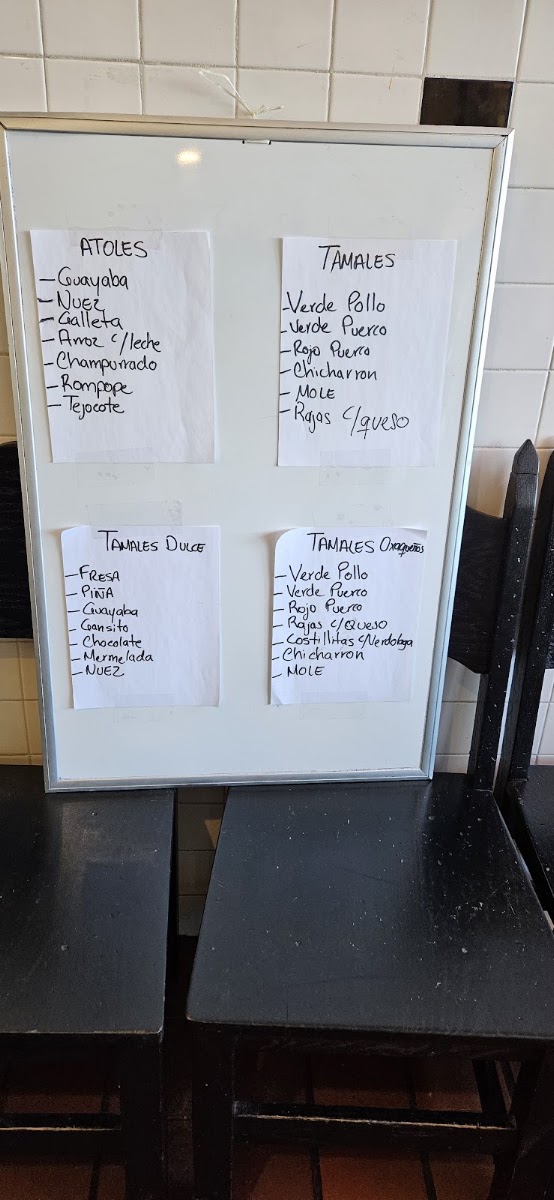 ATOLES
- Guayaba
- NUEZ
- Galleta
- Arroz c/leche
- Champurrado
- Rompope
- Tejocote
TAMALES
- Verde Pollo
- Verde Puerco
- Rojo Puerco
- Chicharron
- MOLE
- Rajas c/queso
TAMALES DULCE
- FRESA
- PIÑA
- Guayaba
- Gansito
- Chocolate
- Mermelada
- NUEZ
TAMALES Oaxaqueños
- Verde Pollo
- Verde Puerco
- Rojo Puerco
- Rajas c/QUESO
- Costillitas c/Verdolaga
- Chicharron
- MOLE